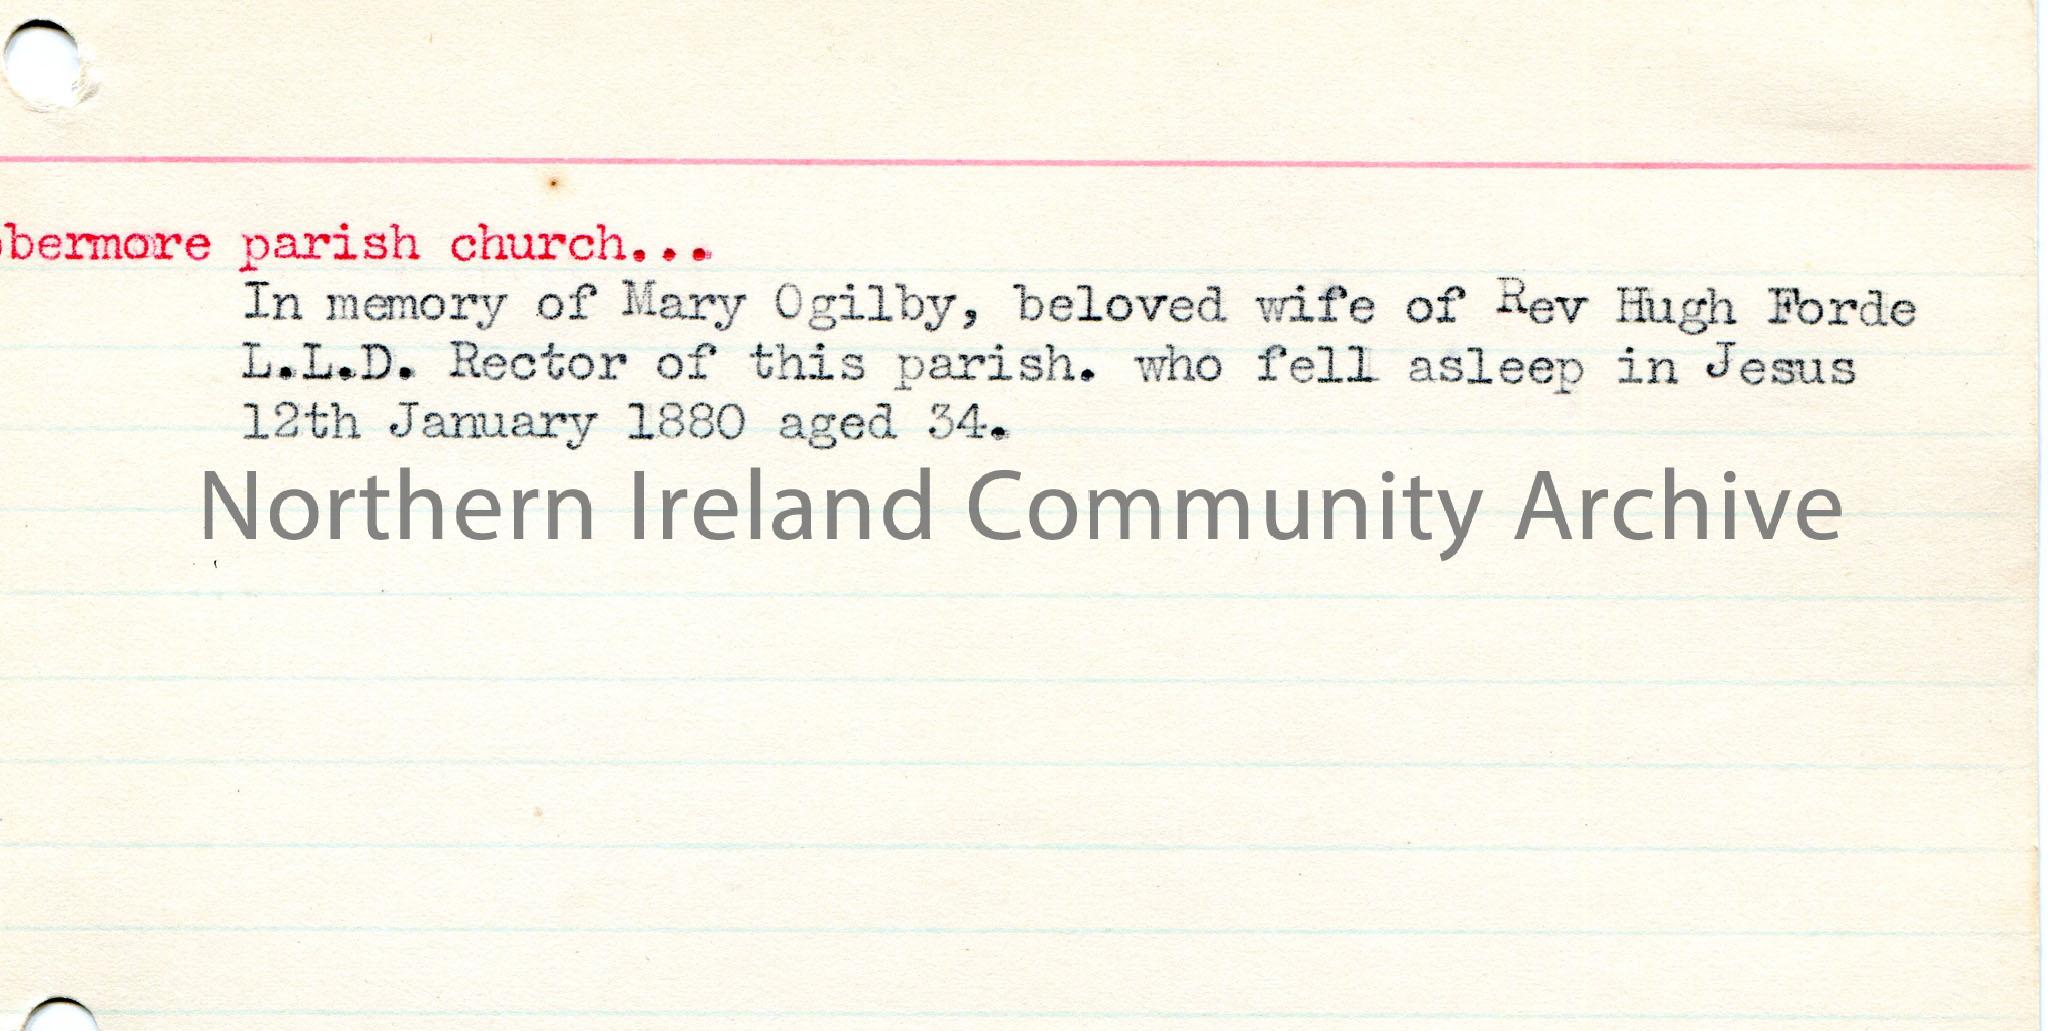 bermore parish church...
In memory of Mary Ogilby, beloved wife of Rev Hugh Forde
L.L.D. Rector of this parish. who fell asleep in Jesus
12th January 1880 aged 34.
Northern Ireland Community Archive